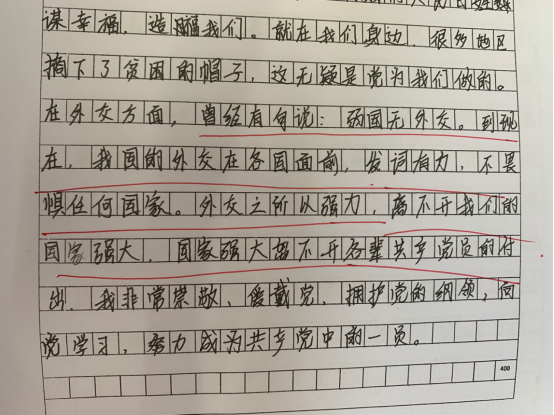 谋幸福，造福我们。就在我们身边，很多地区
摘下了贫困的帽子，这无疑是党为我们做的。
在外交方面，曾经有句说：弱国无外交。到现
在，我国的外交在各国面前，发词有力，不畏
惧任何国家。外交之所以强力，离不开我们的
国家强大，国家强大离不开各辈共产党员的付
出。我非常崇敬、爱戴党，拥护党的纲领，向
党学习，努力成为共产党中的一员。
400